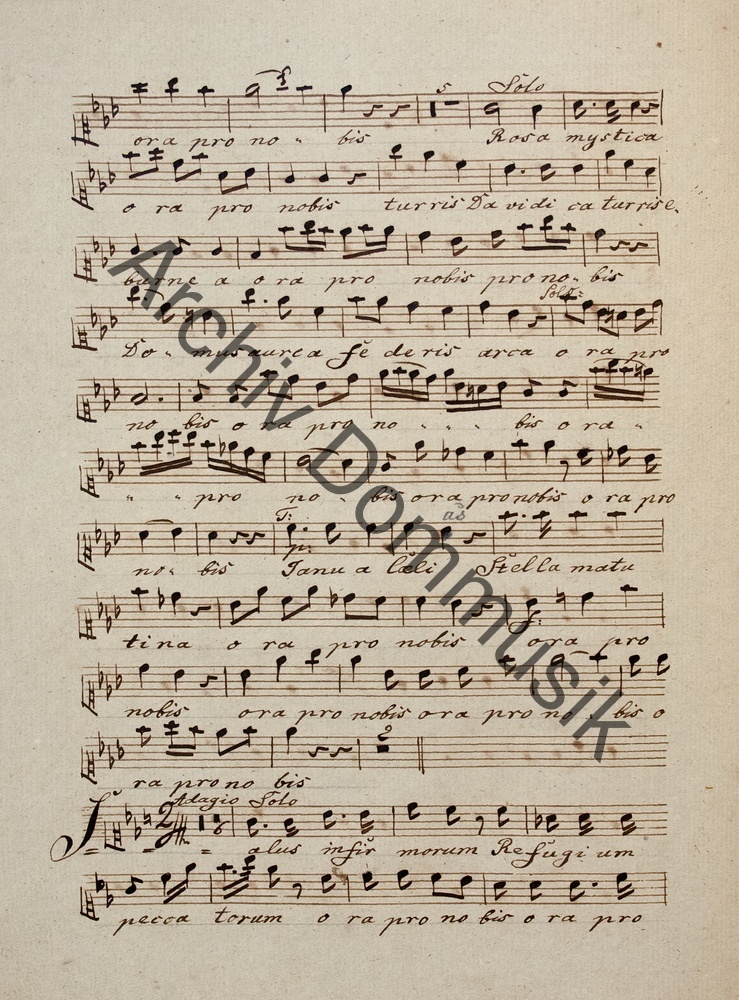 5 Solo
ora pro no - bis Rosa mystica
o ra pro nobis turris Da vidi ca turris e-
burne a o ra pro nobis pro no - bis
Solo:
Do - mus aurea fe deris arca o ra pro
no bis o ra pro no - - - bis o ra -
- - pro no - bis ora pro nobis o ra pro
T: as
no - bis p: Ianu a Cæli Stella matu
tina o ra pro nobis f: ora pro
nobis ora pro nobis ora pro no - bis o
2
ra pro no bis
Adagio Solo
S - - - alus infir morum Refugi um
pecca torum o ra pro no bis o ra pro
Archiv Dommusik